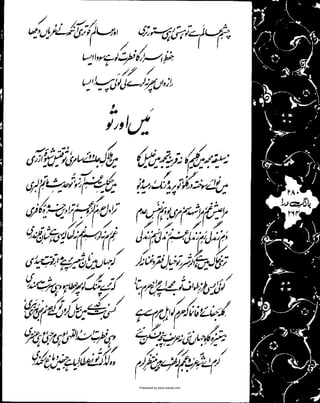 چشمِ عالم سے تو ہستی رہی مستور تری اور عالم کو تری آنکھ نے عریاں دیکھا
حفظِ اسرار کا فطرت کو ہے سودا ایسا
رازداں پھر نہ کرے گی کوئی پیدا ایسا
میں اور تُو
نہ سلیقہ مجھ میں کلیم کا نہ قرینہ تجھ میں خلیل کا میں ہلاکِ جادوئے سامری، تو قتیلِ شیوۂ آزری
میں نوائے سوختہ در گلو، تو پریدہ رنگ، رمیدہ بو میں حکایتِ غمِ آرزو، تو حدیثِ ماتمِ دلبری
مرا عیش غم، مرا شہد سم، مری بود ہم نفسِ عدم ترا دل حرم، گروِ عجم، ترا دیں خریدۂ کافری
دمِ زندگی رمِ زندگی، غمِ زندگی سمِ زندگی غمِ رم نہ کر، سمِ غم نہ کھا کہ یہی ہے شانِ قلندری
تری خاک میں ہے اگر شرر تو خیالِ فقر و غنا نہ کر کہ جہاں میں نانِ شعیر پر ہے مدارِ قوتِ حیدری
کوئی ایسی طرزِ طواف تو مجھے اے چراغِ حرم بتا کہ ترے پتنگ کو پھر عطا ہو وہی سرشتِ سمندری
گلۂ جفائے وفا نما کہ حرم کو اہلِ حرم سے ہے کسی بتکدے میں بیاں کروں تو کہے صنم بھی ہری ہری
نہ ستیزہ گاہِ جہاں نئی نہ حریفِ پنجہ فگن نئے وہی فطرتِ اسد اللّٰہی وہی مرحبی وہی عنتری
کرم اے شہِ عرب و عجم کہ کھڑے ہیں منتظرِ کرم وہ گدا کہ تو نے عطا کیا ہے جنھیں دماغِ سکندری
۲۸۰
بانگِ درا
Presented by www.ziaraat.com